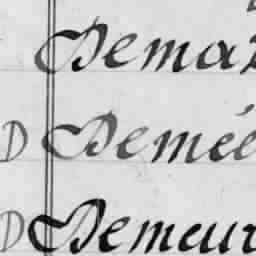 Demaz
D Demée
D Demeur